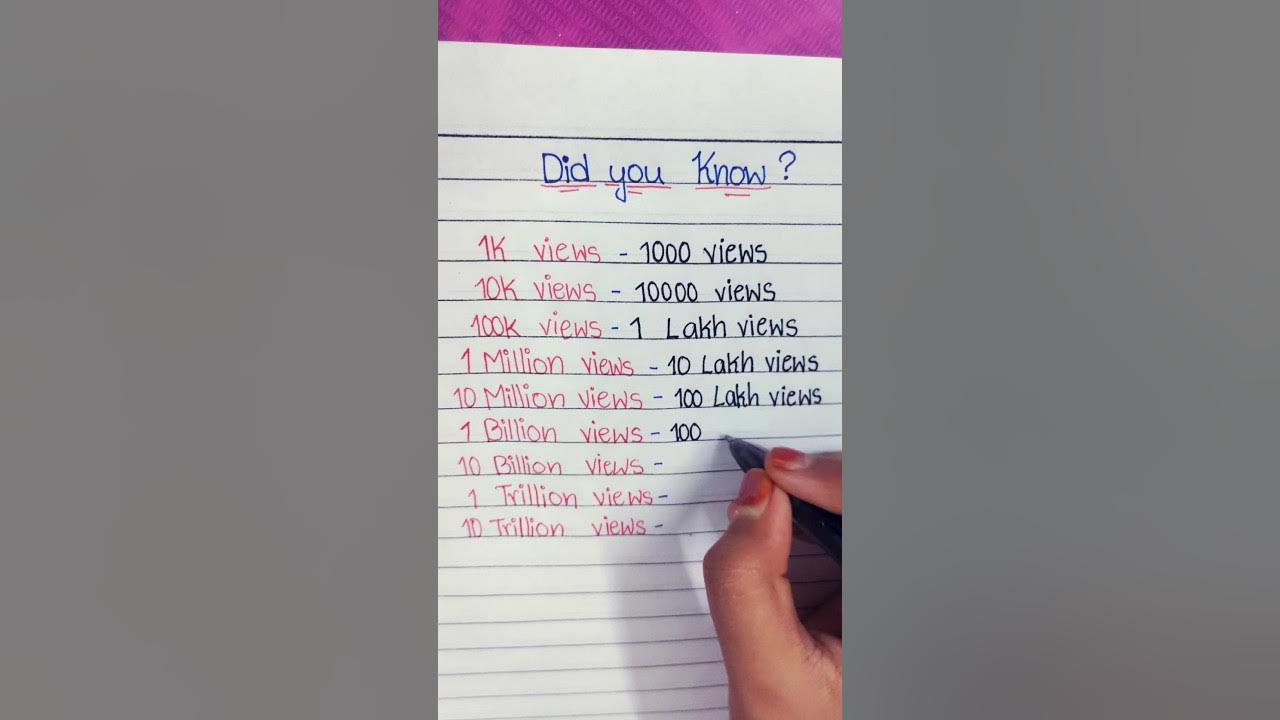 Did you Know?
1K views - 1000 views
10K views - 10000 views
100K views - 1 Lakh views
1 Million views - 10 Lakh views
10 Million views - 100 Lakh views
1 Billion views - 100
10 Billion views -
1 Trillion views -
10 Trillion views -